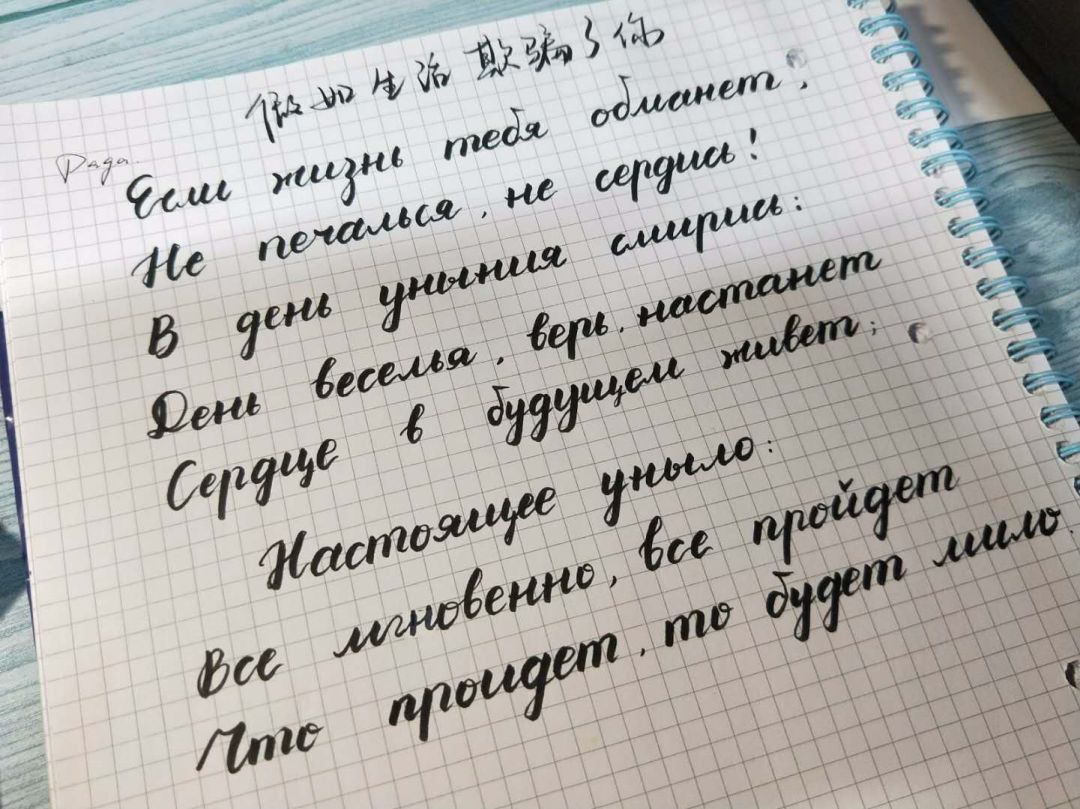 假如生活欺骗了你
Рада.
Если жизнь тебя обманет,
Не печалься, не сердись!
В день уныния смирись:
День веселья, верь, настанет
Сердце в будущем живет;
Настоящее уныло:
Все мгновенно, все пройдет
Что пройдет, то будет мило.